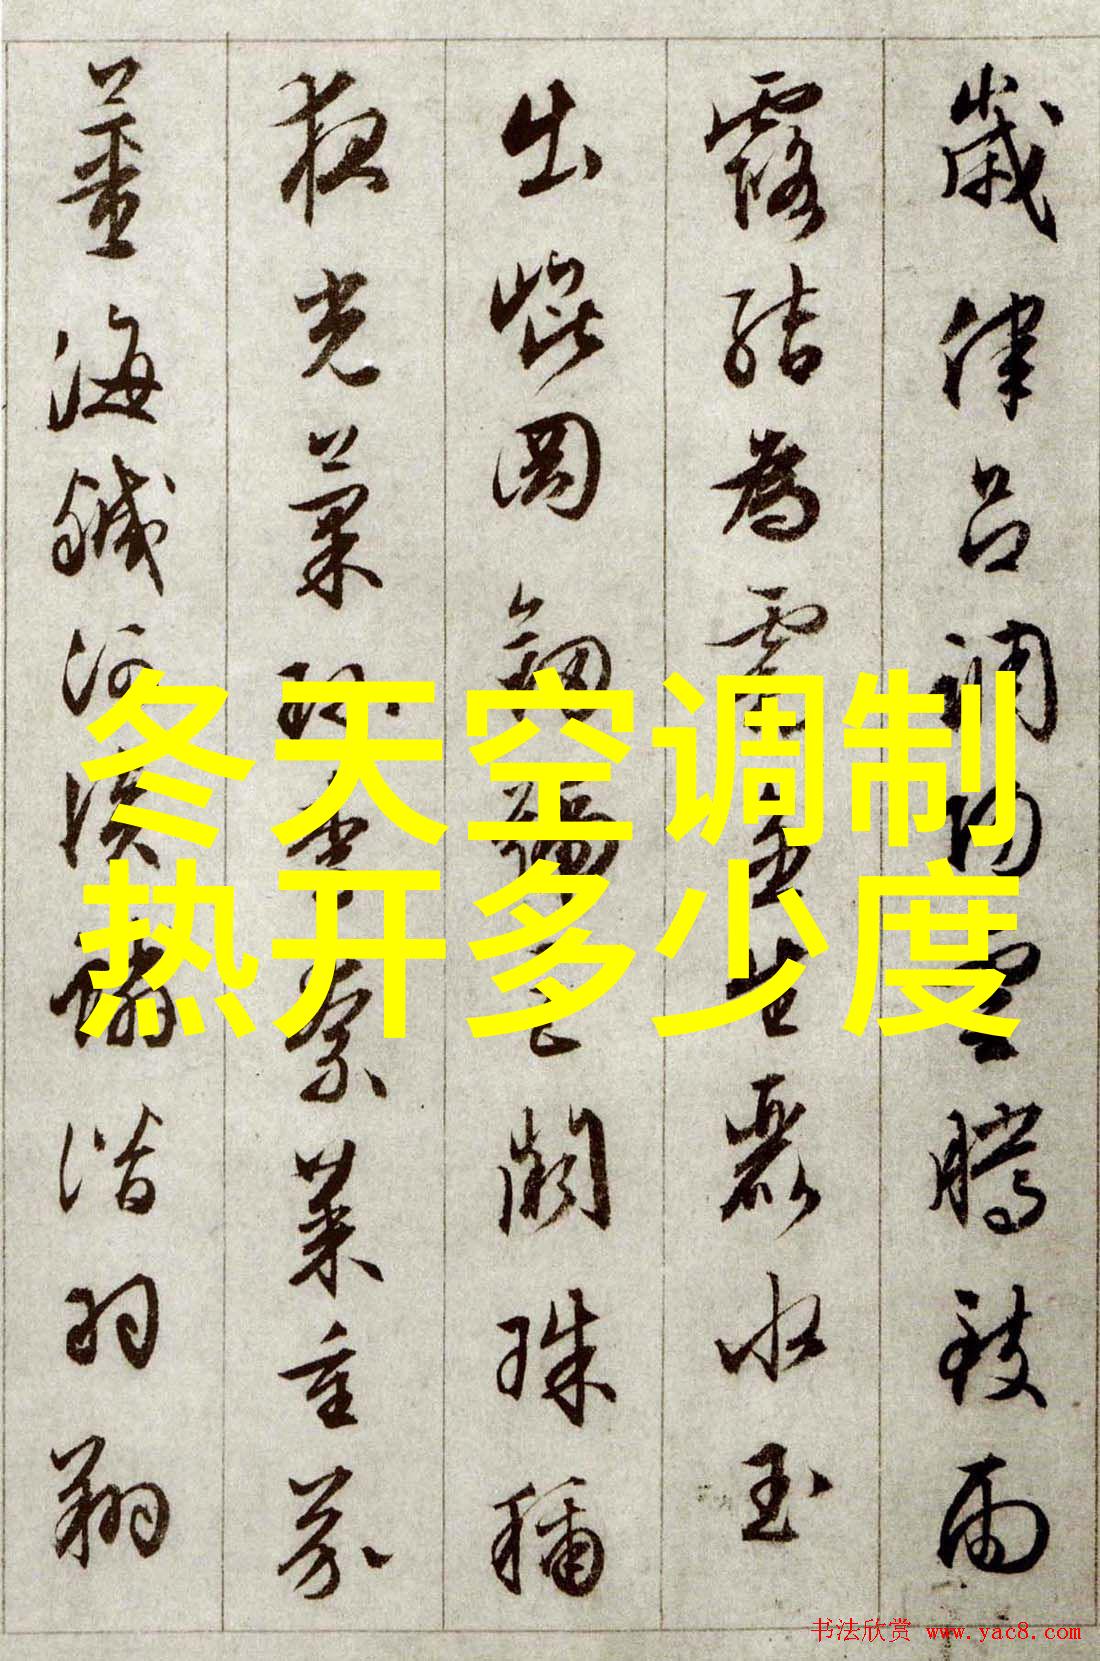 歲律呂調陽雲騰致雨
露結為霜金生麗水玉
出崐岡劒號巨闕珠稱
夜光菓珎李柰菜重芥
薑海鹹河淡鱗潛羽翔
冬天空调制
热开多少度
书法欣赏 www.yac8.com